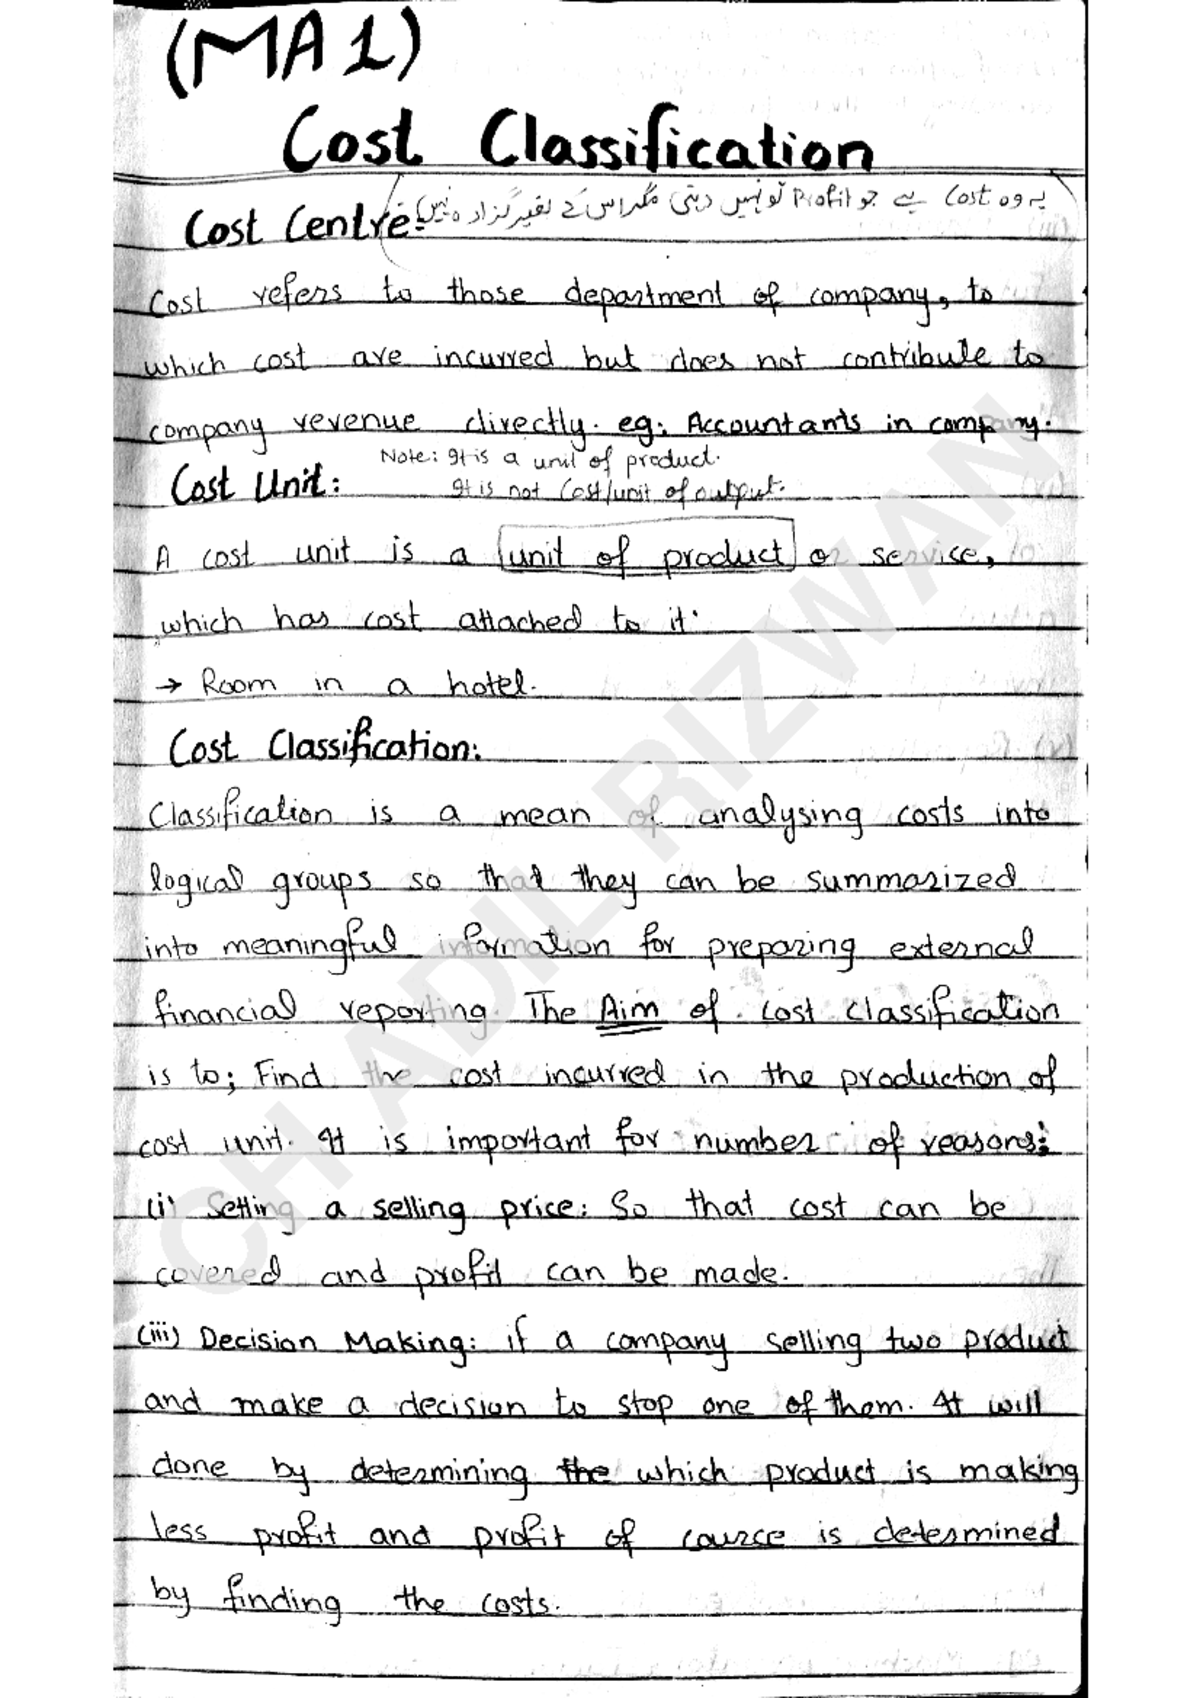 (MA 1)
Cost Classification
Cost Centre: یہ وہ Cost ہے جو Profit تو نہیں دیتی مگر اس کے بغیر گزارہ نہیں
Cost refers to those department of company, to
which cost are incurred but does not contribute to
company revenue directly. eg: Accountants in company.
Note: It is a unit of product.
Cost Unit: It is not Cost/unit of output.
A cost unit is a unit of product or service,
which has cost attached to it.
→ Room in a hotel.
Cost Classification:
Classification is a mean of analysing costs into
logical groups so that they can be summarized
into meaningful information for preparing external
financial reporting. The Aim of cost classification
is to; Find the cost incurred in the production of
cost unit. It is important for number of reasons:
(i) Setting a selling price: So that cost can be
covered and profit can be made.
(iii) Decision Making: if a company selling two product
and make a decision to stop one of them. It will
done by determining the which product is making
less profit and profit of cource is determined
by finding the costs.
CH ADIL RIZWAN